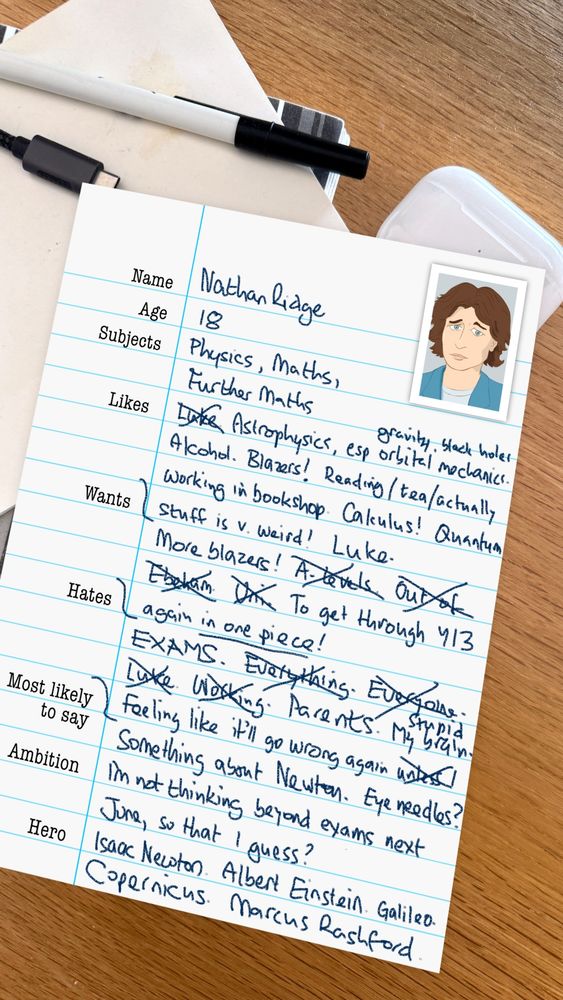 Name Nathan Ridge
Age 18
Subjects Physics, Maths,
Further Maths
Likes Luke Astrophysics, esp orbital mechanics.
gravity, black holes
Alcohol. Blazers! Reading/tea/actually
working in bookshop. Calculus! Quantum
Wants stuff is v. weird! Luke.
More blazers! A-levels. Out of
Ebeham Uni. To get through Y13
Hates again in one piece!
EXAMS. Everything. Everyone.
Luke Working. Parents. My stupid brain.
Most likely to say Feeling like it'll go wrong again unless
Something about Newton. Eye needles?
Ambition I'm not thinking beyond exams next
June, so that I guess?
Hero Isaac Newton. Albert Einstein. Galileo.
Copernicus. Marcus Rashford.